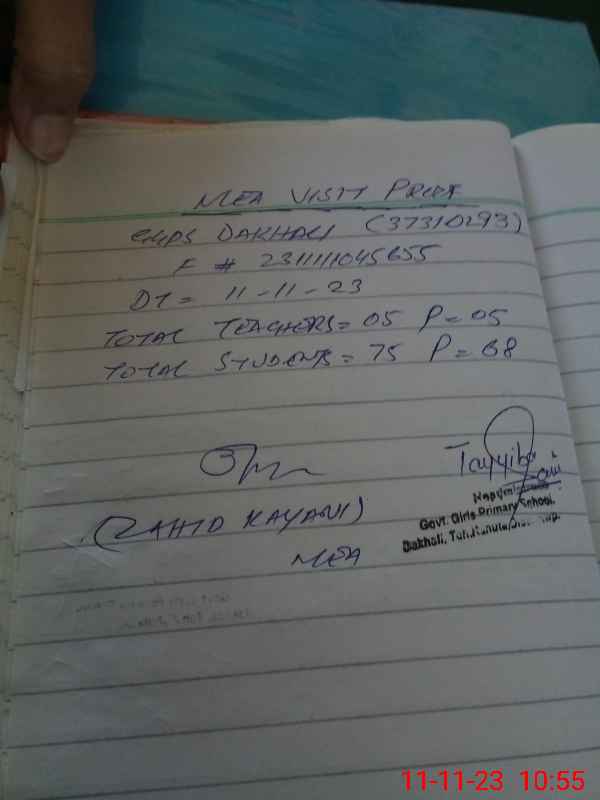 MEA VISIT PROOF
GGPS DAKHALI (37310293)
F # 231111045655
DT = 11-11-23
TOTAL TEACHERS = 05 P = 05
TOTAL STUDENTS = 75 P = 68
Tayyiba
Govt. Girls Primary School
Dakhali, Teh. Kahuta
(ZAHID KAYANI)
MEA
11-11-23 10:55